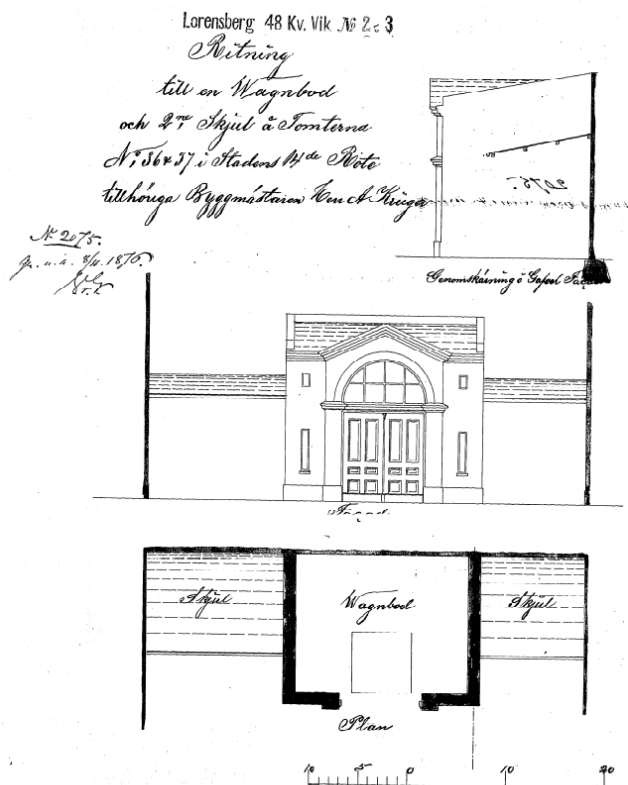 Lorensberg 48 Kv. Vik № 2 & 3
Ritning
till en Wagnbod
och 2ne Skjul å Tomterna
No 36 & 37 i Stadens 14de Rote
tillhöriga Byggmästaren Herr A Krüger
No 2075.
1876.
2075.
Genomskärning o Gafvel Façade
Façad
Skjul
Wagnbod
Skjul
Plan
10 5 0 10 20